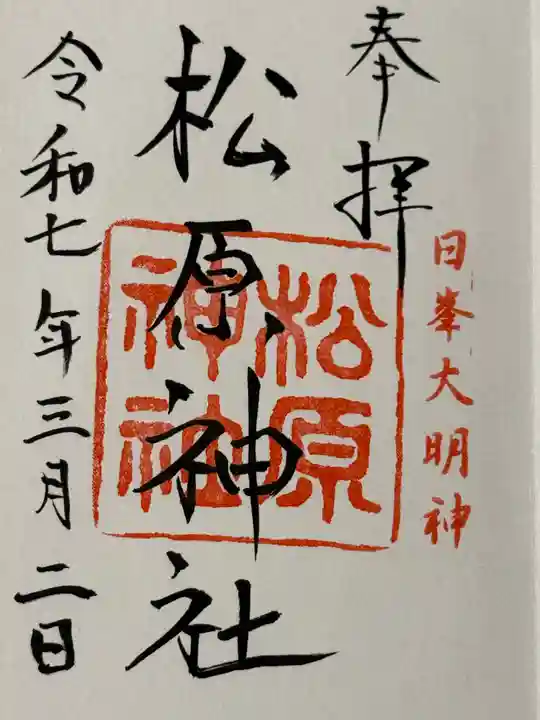 奉拝
日峯大明神
松原神社
松原神社
令和七年三月二日